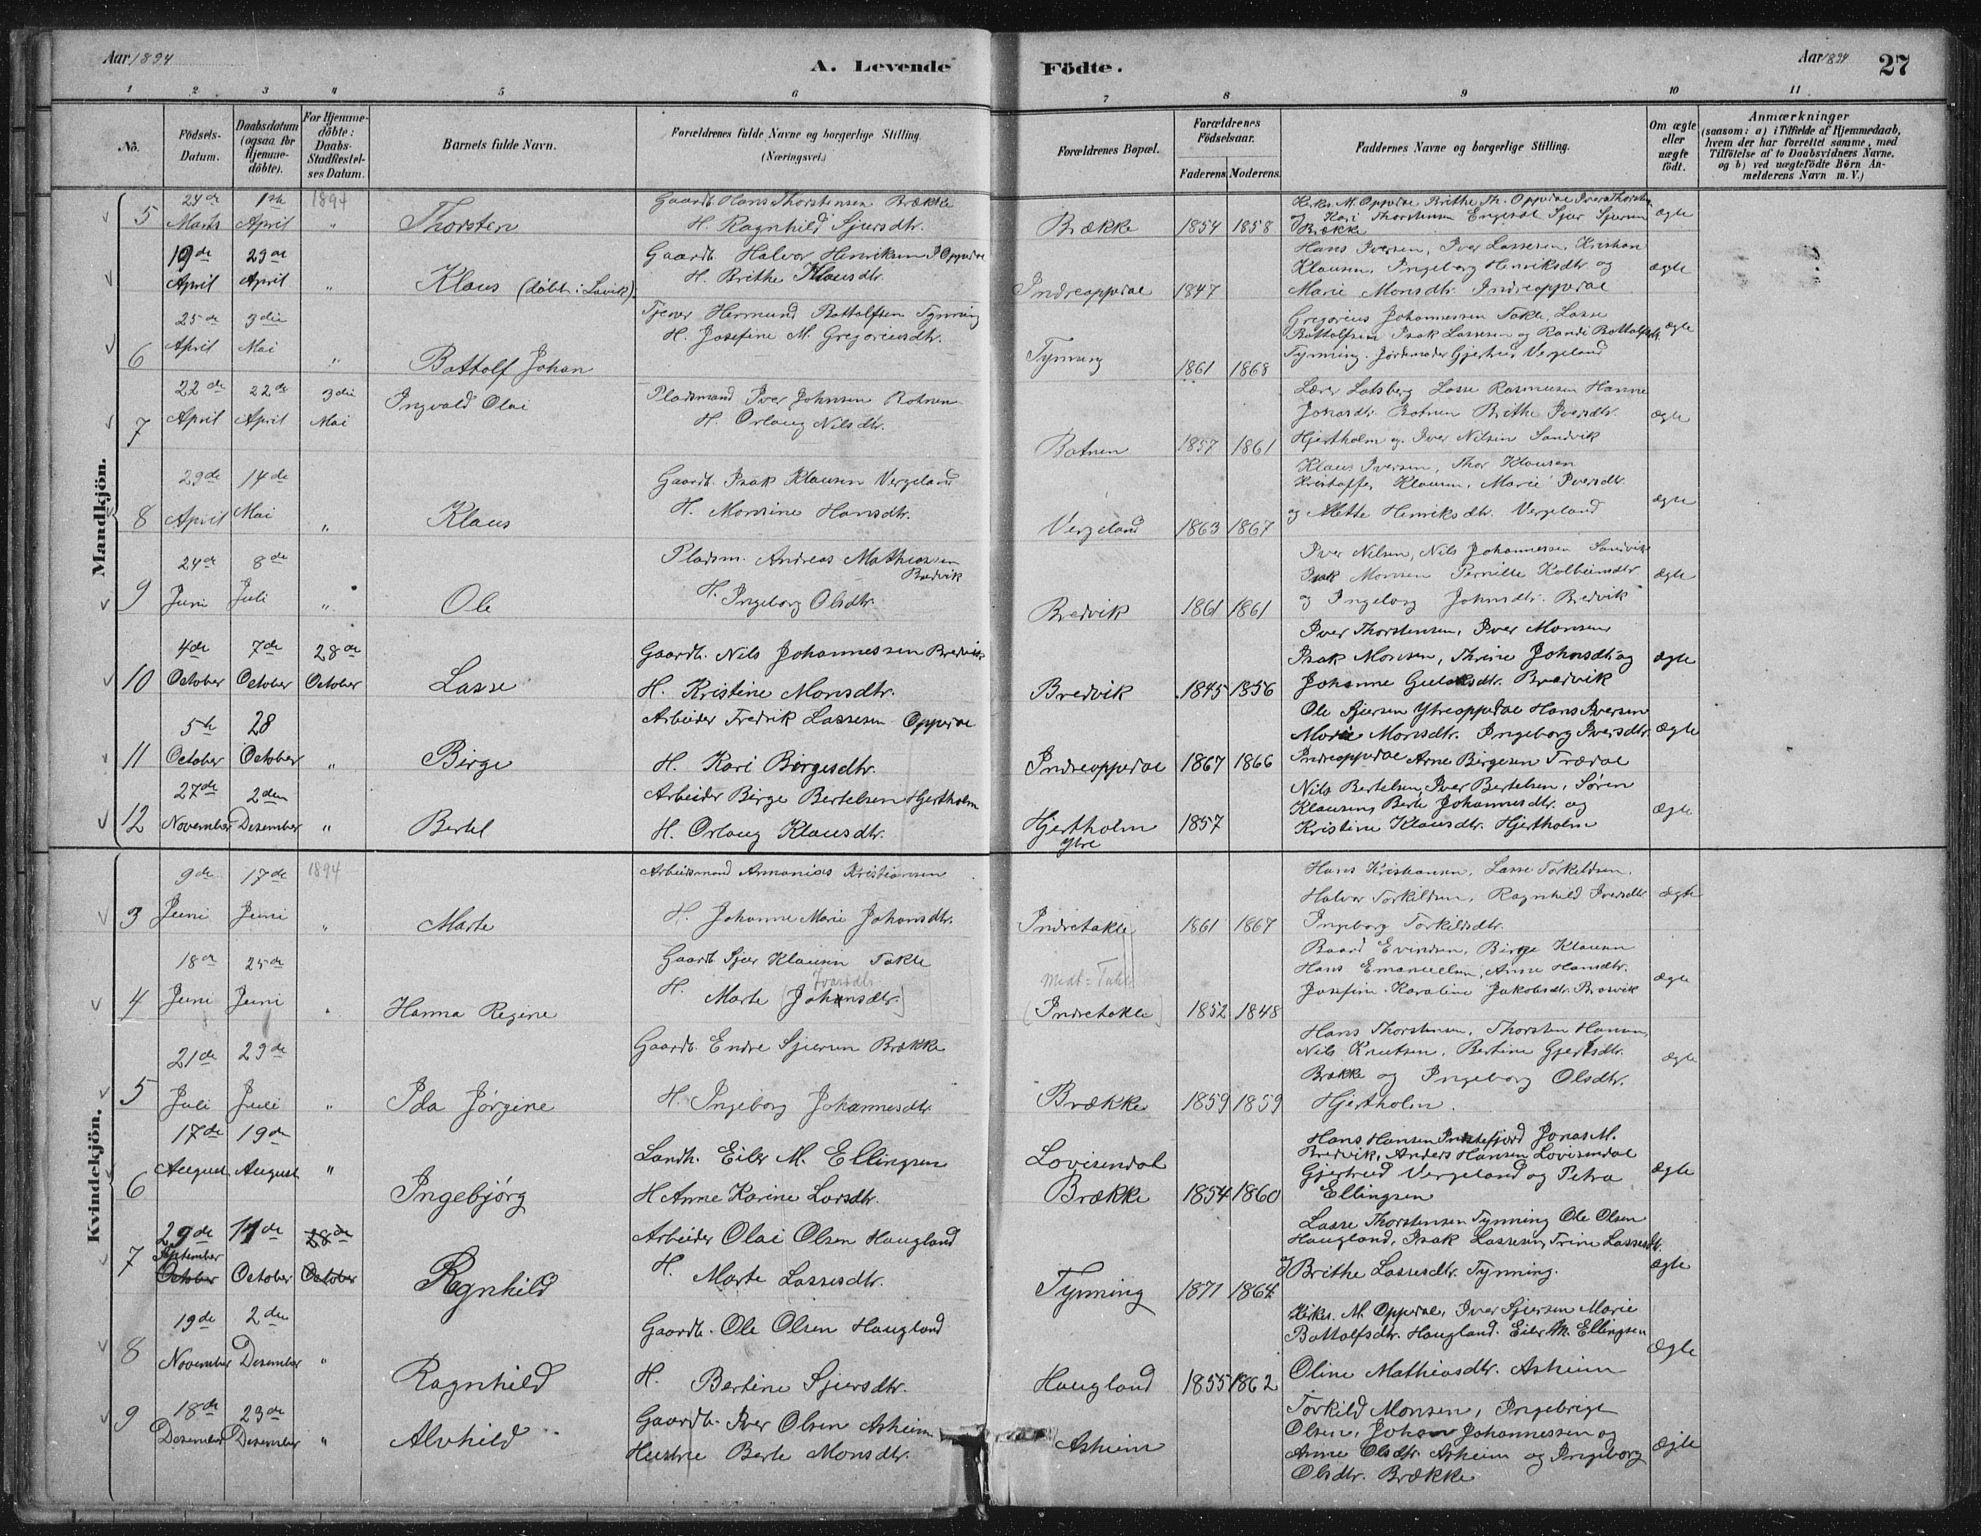 Aar 1894
A. Levende Födte.
Aar 1894 27
1 2 3 4 5 6 7 8 9 10 11
No.
Födsets-Datum.
Daabsdatum (ogsaa for Hjemme-döbte).
For Hjemme-döbte: Daabs-Stadfæstel-ses Datum.
Barnets fulde Navn.
Forældrenes fulde Navne og borgerlige Stilling.
(Næringsvei.)
Forældrenes Bopæl.
Forældrenes Födselsaar.
Faderens. Moderens.
Faddernes Navne og borgerlige Stilling.
Om ægte eller uægte födt.
Anmærkninger
(saasom: a) i Tilfælde af Hjemmedaab, hvem der har forrettet samme, med Tilföielse af to Daabsvidners Navne, og b) ved uægtefödte Börn Anmelderens Navn m. V.)
Mandkjön.
5 24de Marts 1ste April 1894 " Thorsten
Gaardb. Hans Thorstensen Brække
H. Ragnhild Sjursdtr.
Brække 1854 1858
Kirkes. M. Oppedal Brithe Th. Oppedal Iver Thorsten
og Kari Thorstensen Engesæt Sjur Sjursen
Brække
ægte
19de April 29de April " Klaus (døbt i Lavik).
Gaardb. Halvor Henriksen I Oppedal
H. Brithe Klausdtr.
Indreoppedal 1847
Hans Iversen, Iver Lassesen, Kristian
Klausen, Ingeborg Henriksdtr og
Marie Monsdtr. Indreoppedal
ægte
6 25de April 3die Mai " Bottolf Johan
Tjener Hermund Bottolfsen Tynning
H. Josefine M. Gregoriusdtr.
Tynning 1861 1868
Gregorius Johannessen Takle, Lasse
Bottolfsen Isak Lassesen og Randi Bottolfsdtr.
Tynning. Jordmoder Gjertrud Vergeland
ægte
7 22de April 22de April 3die Mai Ingvald Olai
Pladsmand Iver Johnsen Botnen
H. Orlaug Nilsdtr.
Botnen 1857 1861
Lærer Lotsberg Lasse Rasmusen Hanne
Johnsdtr. Botnen Brithe Iversdtr.
Hjertholm og Iver Nilsen Sandvik
ægte
8 29de April 14de Mai " Klaus
Gaardb. Isak Klausen Vergeland
H. Monsine Hansdtr.
Vergeland 1863 1867
Klaus Iversen, Thor Klausen
Kristoffer Klausen, Marie Iversdtr.
og Mette Henriksdtr. Vergeland
ægte
9 24de Juni 8de Juli " Ole
Pladsm. Andreas Mathiassen
Bredvik
H. Ingeborg Olsdtr.
Bredvik 1861 1861
Iver Nilsen, Nils Johannessen Sandvik
Isak Monsen Pernille Kolbeinsdtr
og Ingeborg Johnsdtr. Bredvik
ægte
10 4de October 7de October 28de October Lasse
Gaardb. Nils Johannessen Bredvik
H. Kristine Monsdtr.
Bredvik 1845 1856
Iver Thorstensen, Iver Monsen
Isak Monsen, Thrine Johnsdtr og
Johanne Gulaksdtr. Bredvik
ægte
11 5te October 28 October " Birge
Arbeider Fredrik Lassesen Oppedal
H. Kari Birgesdtr.
Indreoppedal 1867 1866
Ole Sjursen Ytreoppedal Hans Iversen
Marie Monsdtr. Ingeborg Iversdtr.
Indreoppedal Arne Birgesen Trædal
ægte
12 27de November 2den Desember " Bertel
Arbeider Birge Bertelsen Hjertholm
H. Orlaug Klausdtr.
Hjertholm ytre 1857
Nils Bertelsen, Iver Bertelsen, Søren
Klausen, Berte Johannesdtr. og
Kristine Klausdtr. Hjertholm
ægte
Kvindekjön.
3 9de Juni 17de Juni 1894 " Marte
Arbeidsmand Armonias Kristiansen
H. Johanne Marie Johansdtr.
Indretakle 1861 1867
Hans Kristiansen, Lasse Torkildsen.
Halvor Torkildsen, Ragnhild Iversdtr
Ingeborg Torkildsdtr.
ægte
4 18de Juni 25de Juni " Hanna Regine
Gaardb Sjur Klausen Takle
Ivarsdtr
H. Marte [Johansdtr.]
Midt-Takle
[Indretakle] 1852 1848
Baard Evindsen, Birge Klausen
Hans Emanuelsen, Anne Hansdtr.
Josefine Karoline Jakobsdtr. Brosvik
ægte
5 21de Juli 29de Juli " Ida Jørgine
Gaardb. Endre Sjursen Brække
H. Ingeborg Johannesdtr.
Brække 1859 1859
Hans Thorstensen, Thorsten Hansen,
Nils Knutsen, Bertine Gjertsdtr.
Brække og Ingeborg Olsdtr.
Hjertholm.
ægte
6 17de August 19de August " Ingebjørg
Landh. Eiler M. Ellingsen
H Anne Karine Larsdtr.
Lovisendal
Brække 1854 1860
Hans Hansen Instefjord Jonas M.
Bredvik, Anders Hansen Lovisendal
Gjertrud Vergeland og Petra
Ellingsen
ægte
7 29de September October 14de October 28de October Ragnhild
Arbeider Olai Olsen Haugland
H. Marte Lassesdtr.
Tynning 1871 1864
Lasse Thorstensen Tynning Ole Olsen
Haugland, Isak Lassesen, Trine Lassesdtr.
og Brithe Lassesdtr. Tynning.
ægte
8 19de November 2den Desember " Ragnhild
Gaardb. Ole Olsen Haugland
H. Bertine Sjursdtr.
Haugland 1855 1862
Kirkes. M. Oppedal, Iver Sjursen Marie
Bottolfsdtr. Haugland. Eiler M. Ellingsen
Oline Mathiasdtr. Asheim
ægte
9 18de Desember 23de Desember " Alvhild
Gaardb. Iver Olsen Asheim
Hustrue Berte Monsdtr.
Asheim
Torkild Monsen, Ingebrigt
Olsen, Johan Johannessen og
Anne Olsdtr. Asheim og Ingeborg
Olsdtr. Brække
ægte